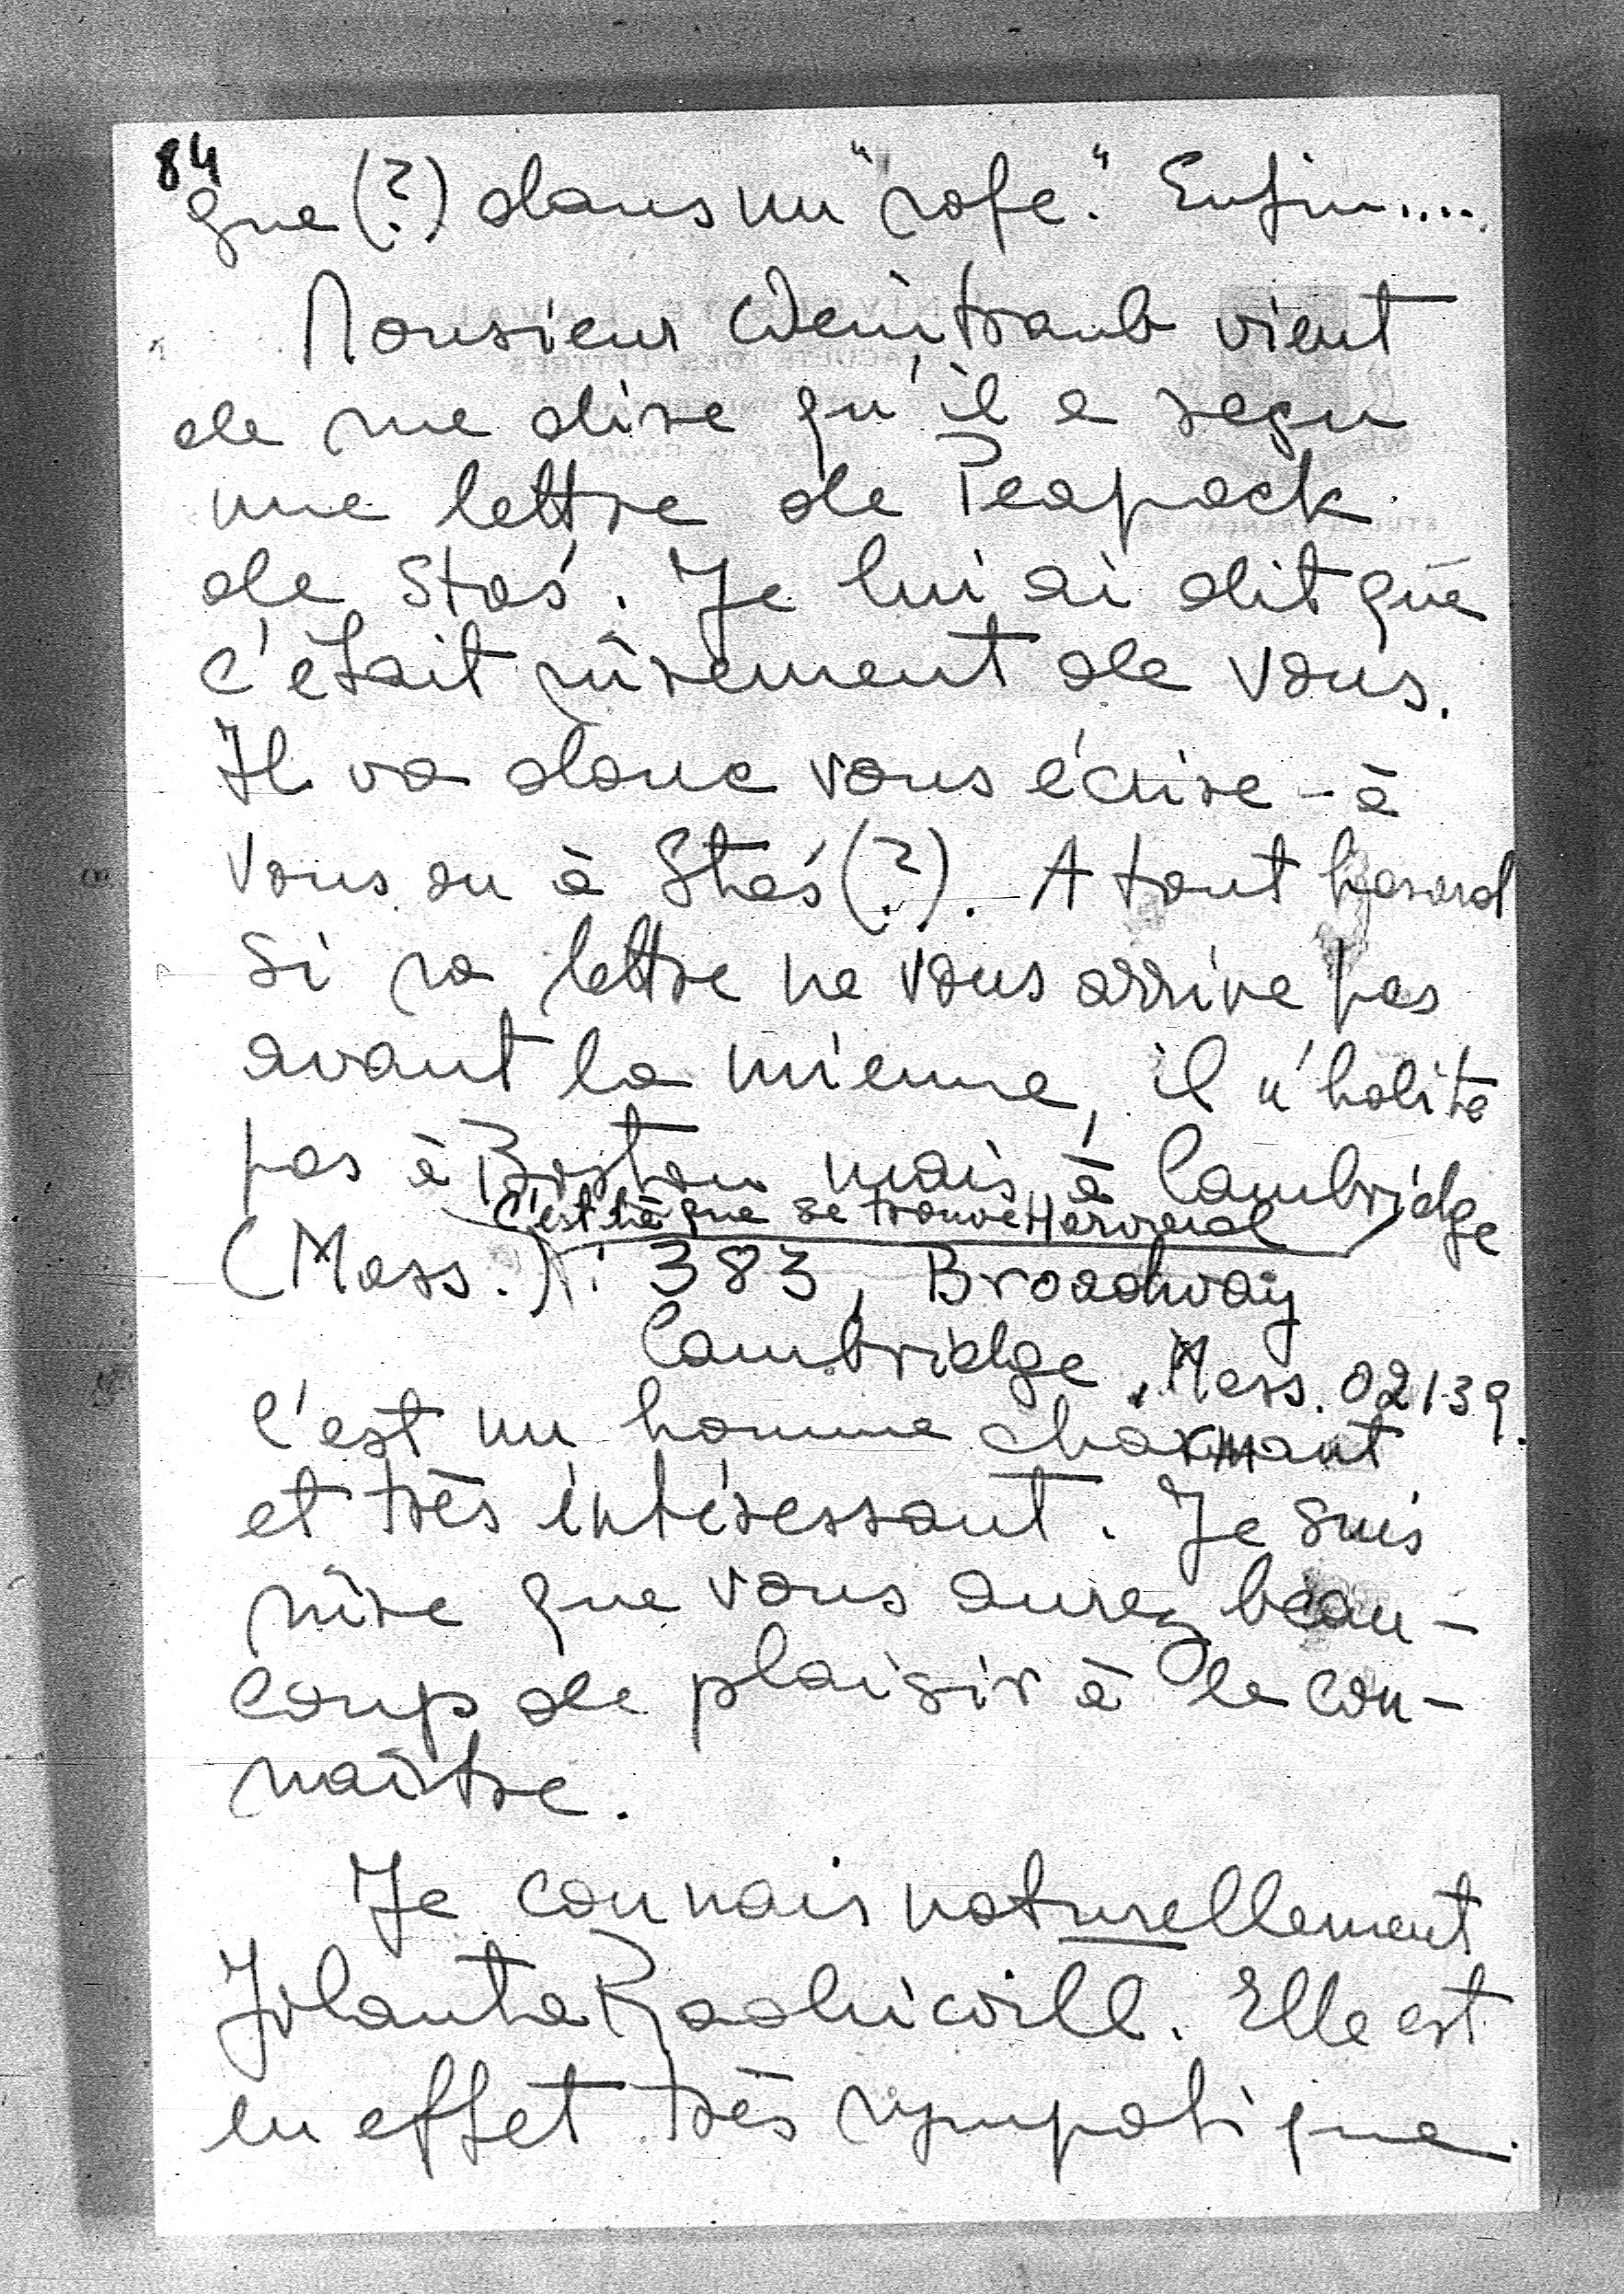 84
que (?) dans un "safe". Enfin....
Monsieur Weintraub vient
de me dire qu'il a reçu
une lettre de Peapack
de Staś. Je lui ai dit que
c'était sûrement de vous.
Il va donc vous écrire - à
vous ou à Staś (?). A tout hasard
si sa lettre ne vous arrive pas
avant la mienne, il n'habite
pas à Boston mais à Cambridge
(c'est là que se trouve Harvard)
(Mass.): 383, Broadway
Cambridge, Mass. 02139.
C'est un homme charmant
et très intéressant. Je suis
sûre que vous aurez beau-
coup de plaisir à le con-
naître.
Je connais naturellement
Jolanta Radziwill. Elle est
en effet très sympatique.